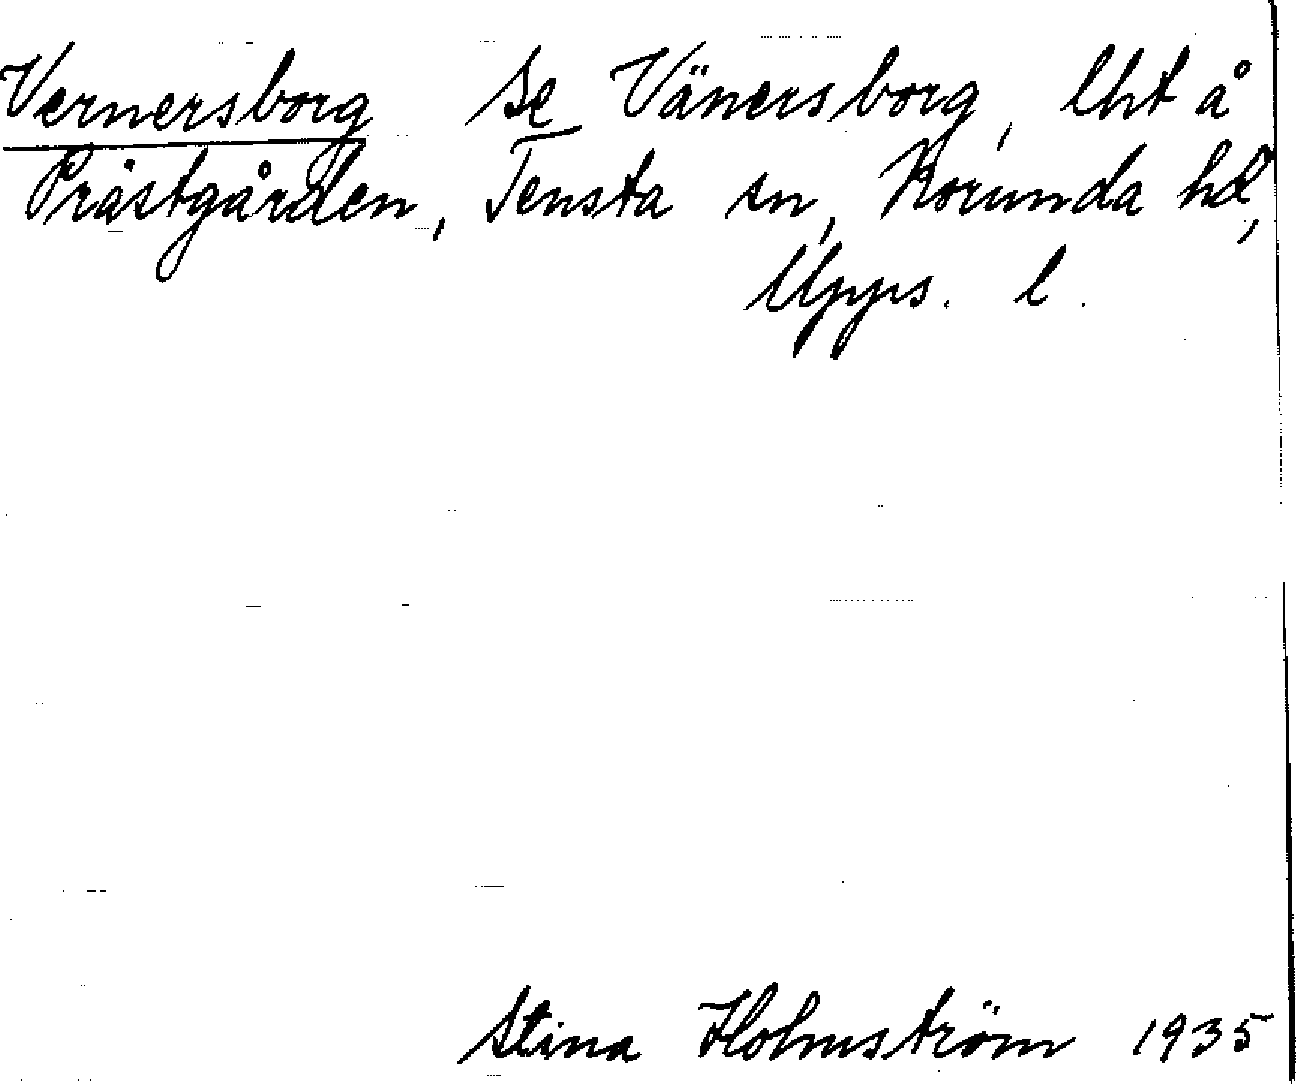 Vernersborg Se Vänersborg, lht å
Prästgården, Tensta sn, Norunda hd,
Upps. l.
Stina Holmström 1935